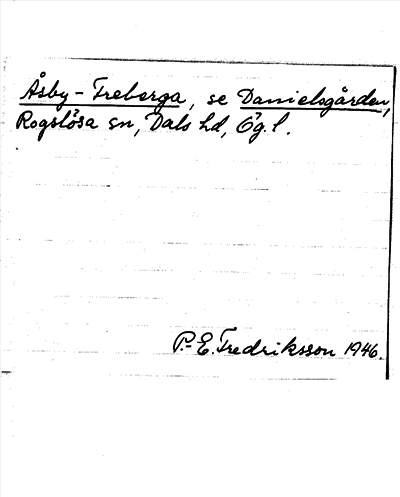 Åsby-Treberga, se Danielsgården,
Rogslösa sn, Dals hd, Ög. l.
P.-E. Fredriksson 1946.